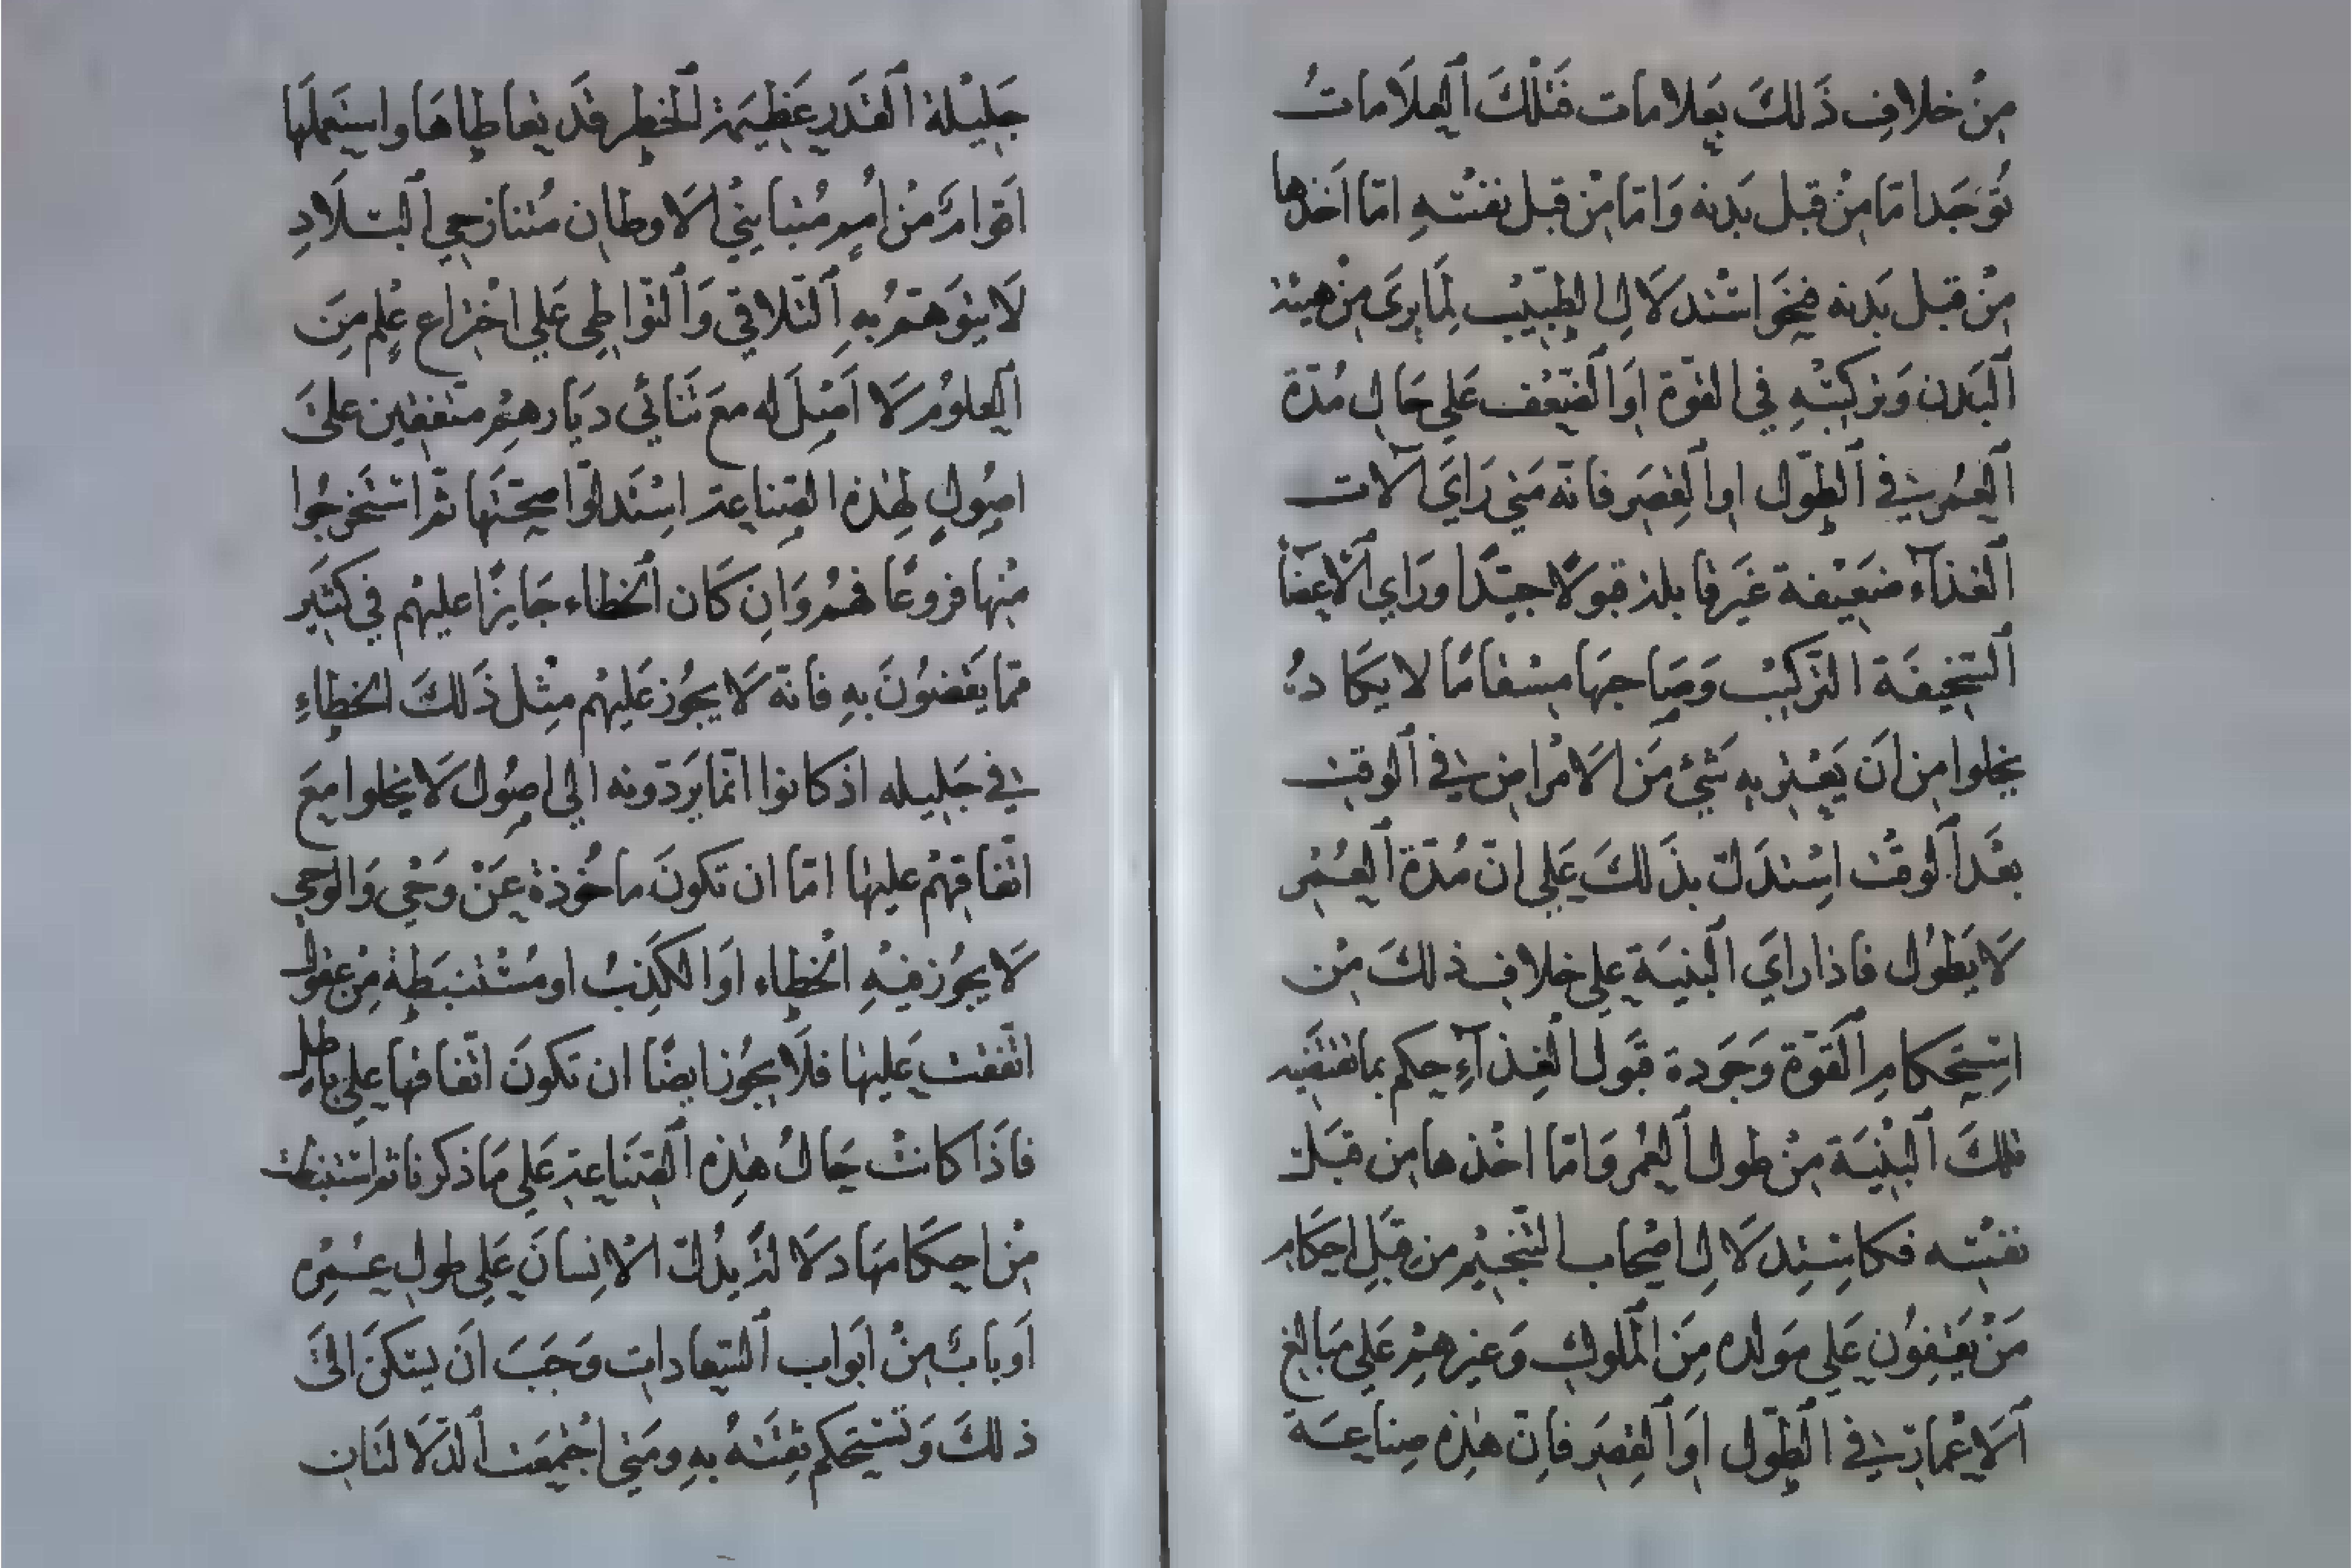 مِنْ خلافِ ذَلكَ بِعَلامات فَتلْكَ اَلعلَامَاتُ
تُوْجَد امّا مِنْ قبل بَدنه وَامّا مِنْ قبل نَفسْهِ امّا اَخذها
مِنْ قبْل بَدنه فنحَوَ اسْتدلَالِ الطَبيْب لِمَا يرىَ مِنْ هيئة
اَلبَدن وَتركيْبْهِ في القوّة اوَ اَلضّعْف عَلي حَال مُدّة
اَلعُمر في اَلطّول او اَلقِصَر فانّه مَتي رَاىَ آلات
اَلغذآء ضعَيْفة غَير قابلة قبولًا جيّدًا ورَاي اَلاعضآ
اَلسّخيفَة التّركيْب وَصَاحبهَا مِسْقامًا لا يكَادُ
يخلوا مِن اَن يَعْتريه شَئٌ مِنَ الاَمْراضِ في اَلوقت
بعْد اَلوقْت اِسْتدَلّ بذَلكَ عَلي انّ مُدّة اَلعُمْر
لَا يَطوُل فاذا رايَ اَلبنيَة علي خلافِ ذلكَ مِنْ
اسِتحْكامِ اَلقوّة وَجَودة قَبَول اَلغِذآءِ حكم بما تقتَضيه
تلكَ اَلبنْيَة مِنْ طول اَلعُمر وَامّا اخْذها مِن قبَل
نفسْه فكاسِتدلَالِ اصْحاب التّنجْيم من قبَلِ احكَام
مَنْ يَقفوُن عَلي مَولده مِنَ اَلملوك وَغيرهِمْ عَلي مَبالغ
اَلاَعْمارّ في اَلطّول اوَ اَلقِصَر فاِنّ هٰذِهِ صِناعَة
جَليْلة اَلقَدَرِ عَظيَمة اَلخطر قَد تعاطاهَا واستعَملَها
اَقوامٌ مْن اُممٍ مُتبَاينيْ الاَوطان مُتنازحِي اَلبَلَادِ
لَا يتوَهّمُ بهِ اَلتّلاقِي وَاَلتّواطِي عَلي اخْتراعِ عْلمٍ مِنَ
اَلعلوُم لَا اَصْلَ له معَ تَنائي ديَارهِمْ متّفقين علىَ
اصُولٍ لهٰذه الصّناعة اِسْتَدلّوا صِحّتهَا ثمّ اسْتَخرجُوا
مِنْها فروعًا فهُم وَانِ كَان اَلخَطاء جَايزًا عليهْم فِي كَثيَر
مّما يقَضوُنَ بهِ فانّه لَا يجُوز عَليهْم مثِل ذَلكَ الخطاءِ
في جَليله اذ كانوا انّما يَردّونه الي اصُول لَا يخلوا معَ
اتّفاقِهمْ عليها امّا ان تكونَ ماخُوذة عَنْ وَحْي وَالوَحي
لَا يجُوز فيْهِ الخْطاء اوَ الكَذبُ او مسْتنبَطة مِنْ عقول
اتّفقت عَليهَا فلَا يجُوز ايضًا ان تكونَ اتّفاقها علي باطل
فاذَا كانتْ حَالُ هٰذِه اَلصّنَاعة عَلي مَا ذكر فاتم استنبطت
مْن احكَامهَا دلَالةً يدُلّ الاْنِسانَ عَلي طولِ عُمْره
اَو بابٌ مِنْ ابَواب اَلسّعادات وَجَبَ اَن يسكنَ الىَ
ذلكَ وَتسْتحكم ثِقتَهُ بهِ ومَتي اجْتمعَت اَلدلَالتَانِ